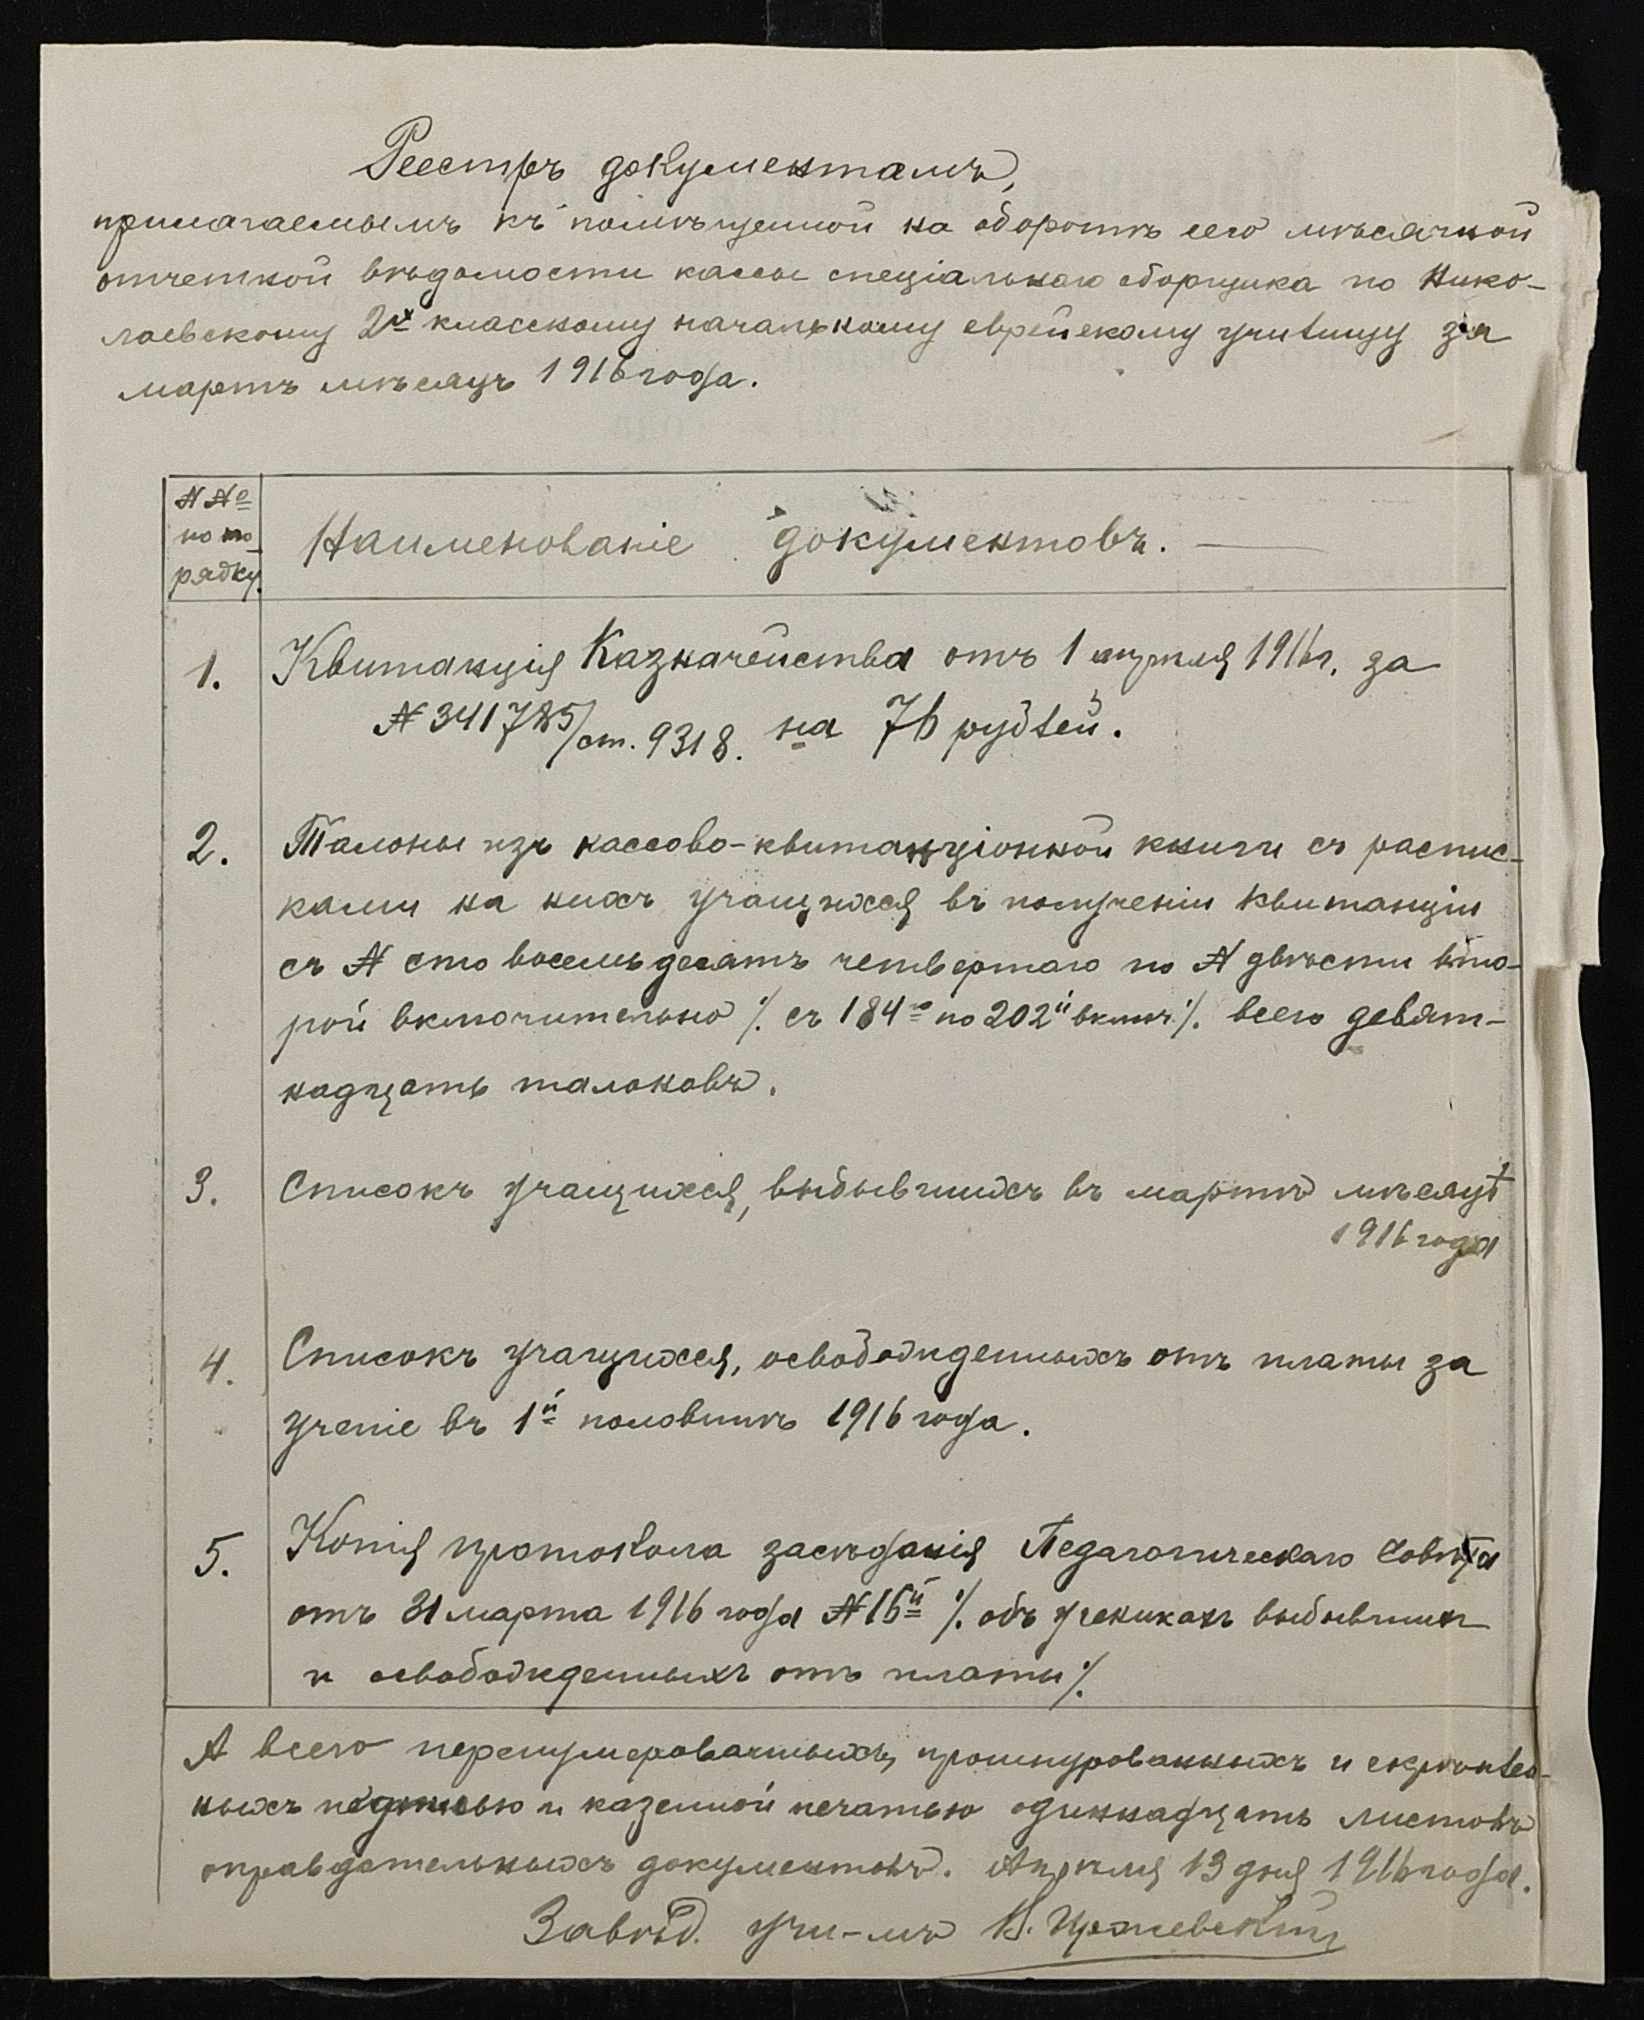 Реестръ документамъ,
прилагаемымъ къ помѣщенной на оборотѣ сего мѣсячной
отчетной вѣдомости кассы спеціальнаго сборщика по Нико-
лаевскому 2х классному начальному еврейскому училищу за
мартъ мѣсяцъ 1916 года.
№№
по по-
рядку.
Наименованіе документовъ.
1.
Квитанція Казначейства отъ 1 апрѣля 1916 г. за
№ 341785/ст. 9318. на 76 рублей.
2.
Талоны изъ кассово-квитанціонной книги съ распис-
ками на нихъ учащихся въ полученіи квитанціи
съ № сто восемьдесятъ четвертаго по № двѣсти вто-
рой включительно ·/. съ 184го по 202й включ ·/. всего девят-
надцать талоновъ.
3.
Списокъ учащихся, выбывшихъ въ мартѣ мѣсяцѣ
1916 года
4.
Списокъ учащихся, освобожденныхъ отъ платы за
ученіе въ 1й половинѣ 1916 года.
5.
Копія протокола засѣданія Педагогическаго Совѣта
отъ 31 марта 1916 года № 16й ·/. объ ученикахъ выбывшихъ
и освобожденныхъ отъ платы ·/.
А всего перенумерованныхъ, прошнурованныхъ и скрѣплен-
ныхъ подписью и казенной печатью одиннадцать листовъ
оправдательныхъ документовъ. Апрѣля 13 дня 1916 года.
Завѣд. учи-мъ